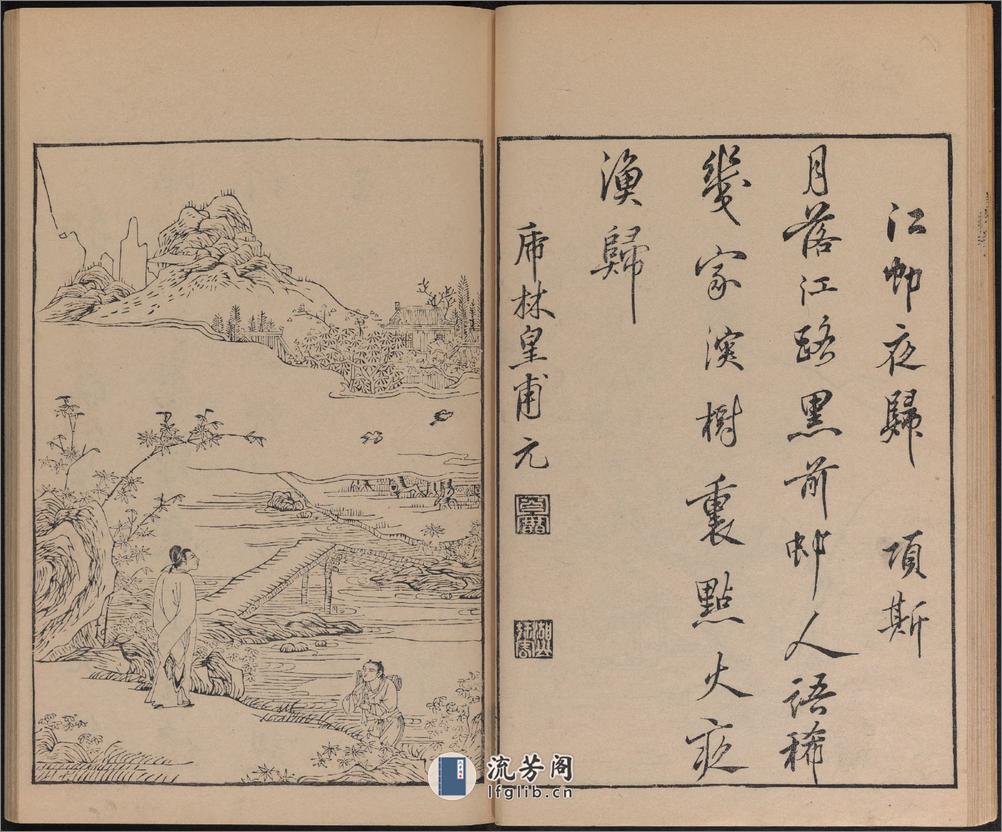 江邨夜歸　項斯
月落江路黑前邨人語稀
幾家深樹裏點火夜
漁歸
虎林皇甫元
流芳阁
lfglib.cn